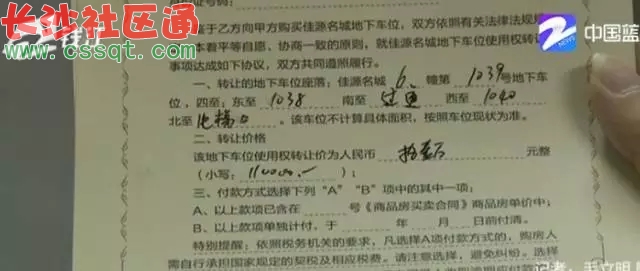 证号码：
长沙社区通
www.cssqt.com
中国蓝
NEWS
鉴于乙方向甲方购买佳源名城地下车位，双方依照有关法律法规规
本着平等自愿、协商一致的原则，就佳源名城地下车位使用权转让
事项达成如下协议，双方共同遵照履行。
一、转让的地下车位座落：佳源名城 6 幢第 1039 号地下车
位，四至：东至 1038 南至 过道 西至 1040
北至 电梯口 。该车位不计算具体面积，按照车位现状为准。
二、转让价格
该地下车位使用权转让价为人民币 元整
（小写： 110000.- ）
三、付款方式选择下列“A”“B”项中的其中一项：
A、以上款项已含在 号《商品房买卖合同》商品房单价中；
B、以上款项单独计付，于 年 月 日前付清。
特别提醒：依照税务机关的要求，凡选择A项付款方式的，购房人
需自行承担国家规定的契税及相应税费。请注意选择，避免纠纷。选择
记者